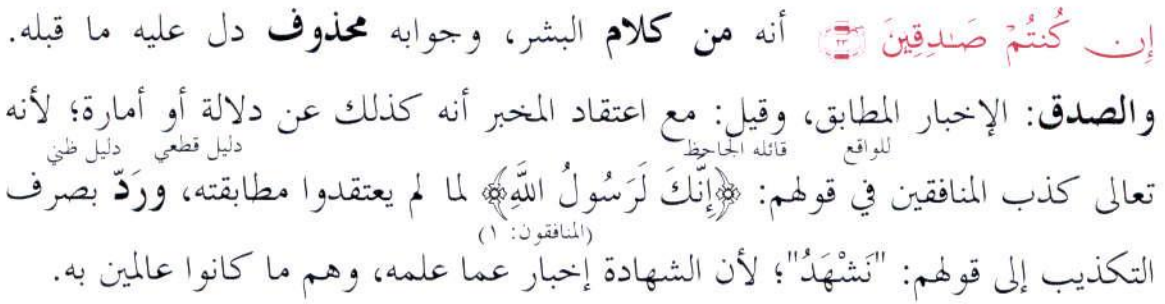 إِن كُنتُمْ صَـٰدِقِينَ ۝٢٣ أنه من كلام البشر، وجوابه محذوف دل عليه ما قبله.
والصدق: الإخبار المطابق، وقيل: مع اعتقاد المخبر أنه كذلك عن دلالة أو أمارة؛ لأنه
للواقع قائله الجاحظ دليل قطعي دليل ظني
تعالى كذب المنافقين في قولهم: ﴿إِنَّكَ لَرَسُولُ اللَّهِ﴾ لما لم يعتقدوا مطابقته، ورَدّ بصرف
(المنافقون: ١)
التكذيب إلى قولهم: "نَشْهَدُ"؛ لأن الشهادة إخبار عما علمه، وهم ما كانوا عالمين به.